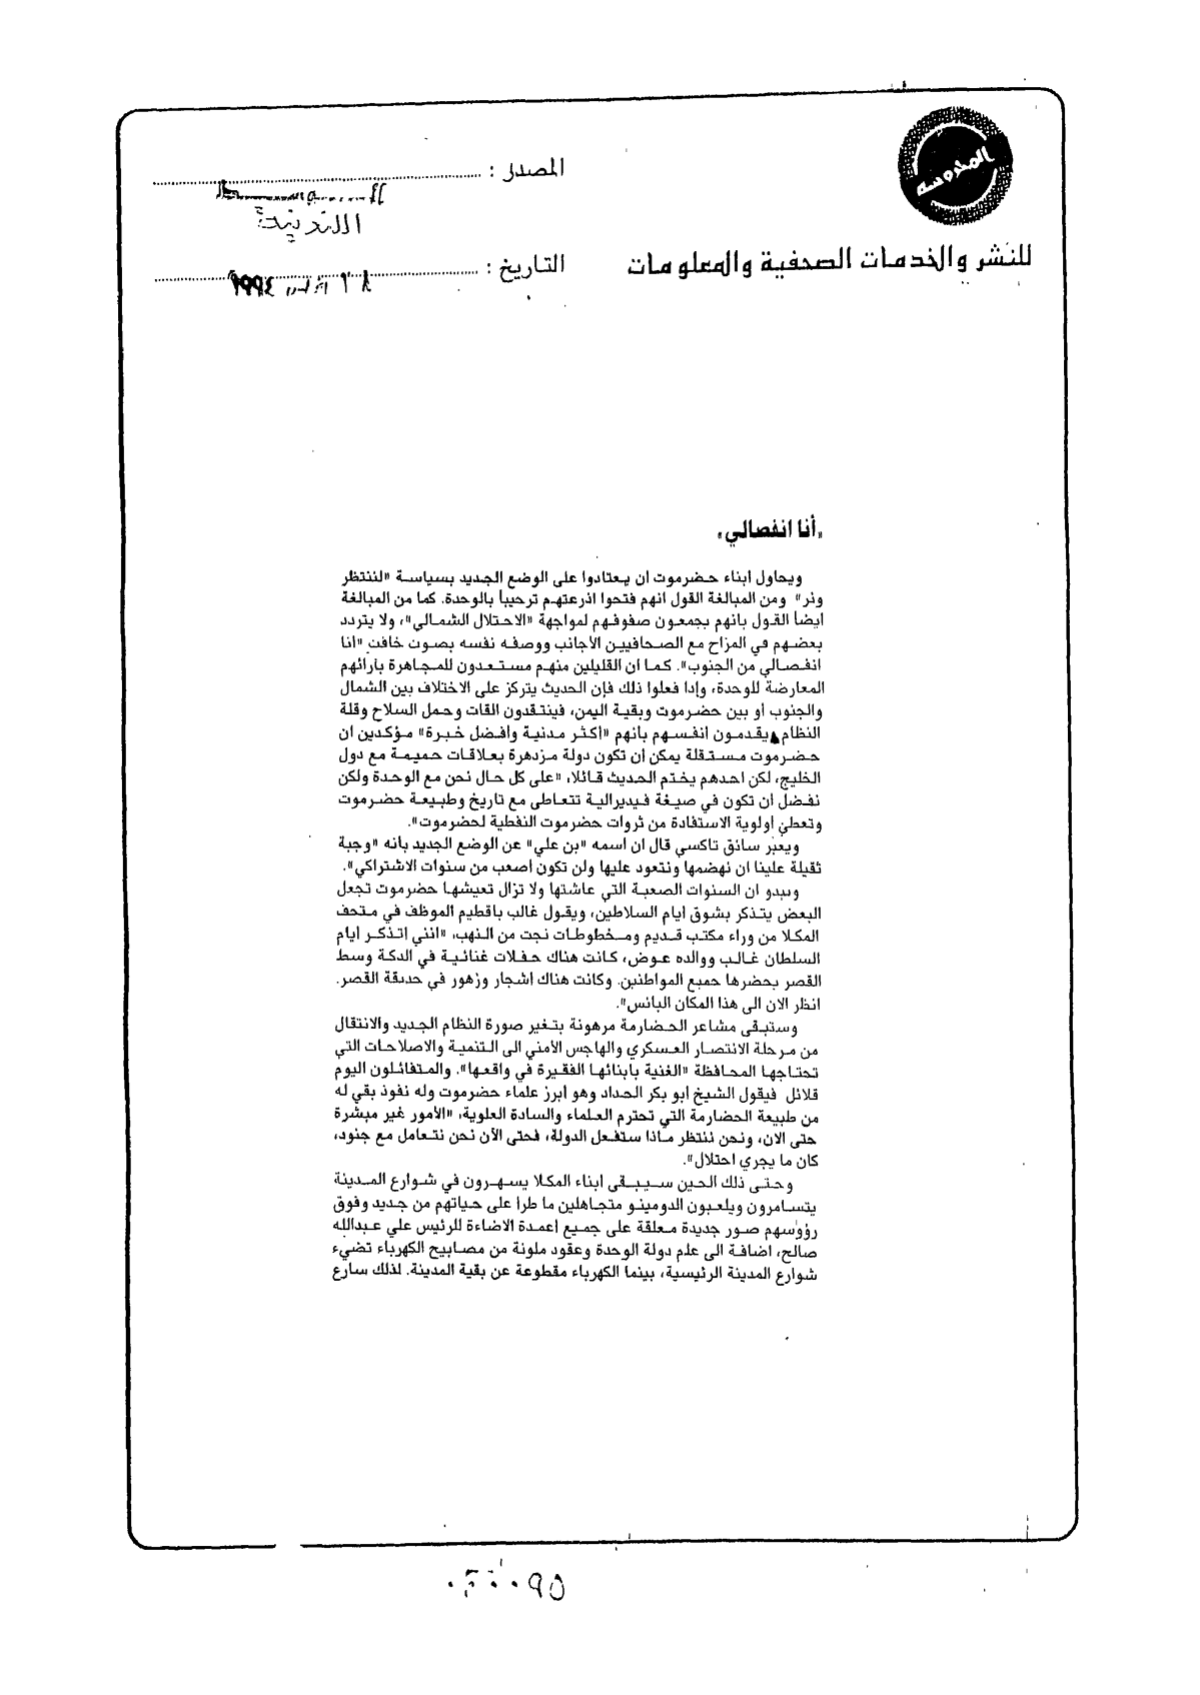 المحروسة
للنشر والخدمات الصحفية والمعلومات
المصدر :
الوسط
اللندنية
التاريخ :
١٩٩٤
«أنا انفصالي»
ويحاول ابناء حضرموت ان يعتادوا على الوضع الجديد بسياسة «لننتظر
ونر» ومن المبالغة القول انهم فتحوا اذرعتهم ترحيباً بالوحدة. كما من المبالغة
ايضاً القول بانهم يجمعون صفوفهم لمواجهة «الاحتلال الشمالي»، ولا يتردد
بعضهم في المزاح مع الصحافيين الأجانب ووصفه نفسه بصوت خافت «انا
انفصالي من الجنوب». كما ان القليلين منهم مستعدون للمجاهرة بارائهم
المعارضة للوحدة، وإذا فعلوا ذلك فإن الحديث يتركز على الاختلاف بين الشمال
والجنوب او بين حضرموت وبقية اليمن، فينتقدون القات وحمل السلاح وقلة
النظام يقدمون انفسهم بانهم «اكثر مدنية وافضل خبرة» مؤكدين ان
حضرموت مستقلة يمكن أن تكون دولة مزدهرة بعلاقات حميمة مع دول
الخليج، لكن احدهم يختم الحديث قائلا، «على كل حال نحن مع الوحدة ولكن
نفضل أن تكون في صيغة فيديرالية تتعاطى مع تاريخ وطبيعة حضرموت
وتعطي اولوية الاستفادة من ثروات حضرموت النفطية لحضرموت».
ويعبر سائق تاكسي قال ان اسمه «بن علي» عن الوضع الجديد بانه «وجبة
ثقيلة علينا ان نهضمها ونتعود عليها ولن تكون اصعب من سنوات الاشتراكي».
ويبدو ان السنوات الصعبة التي عاشتها ولا تزال تعيشها حضرموت تجعل
البعض يتذكر بشوق ايام السلاطين، ويقول غالب باقطيم الموظف في متحف
المكلا من وراء مكتب قديم ومخطوطات نجت من النهب، «انني اتذكر ايام
السلطان غالب ووالده عوض، كانت هناك حفلات غنائية في الدكة وسط
القصر يحضرها جميع المواطنين. وكانت هناك اشجار وزهور في حديقة القصر.
انظر الان الى هذا المكان البائس».
وستبقى مشاعر الحضارمة مرهونة بتغير صورة النظام الجديد والانتقال
من مرحلة الانتصار العسكري والهاجس الأمني الى التنمية والاصلاحات التي
تحتاجها المحافظة «الغنية بابنائها الفقيرة في واقعها». والمتفائلون اليوم
قلائل فيقول الشيخ ابو بكر الحداد وهو ابرز علماء حضرموت وله نفوذ بقي له
من طبيعة الحضارمة التي تحترم العلماء والسادة العلوية، «الأمور غير مبشرة
حتى الان، ونحن ننتظر ماذا ستفعل الدولة، فحتى الأن نحن نتعامل مع جنود،
كان ما يجري احتلال».
وحتى ذلك الحين سيبقى ابناء المكلا يسهرون في شوارع المدينة
يتسامرون ويلعبون الدومينو متجاهلين ما طرأ على حياتهم من جديد وفوق
رؤوسهم صور جديدة معلقة على جميع اعمدة الاضاءة للرئيس علي عبدالله
صالح، اضافة الى علم دولة الوحدة وعقود ملونة من مصابيح الكهرباء تضيء
شوارع المدينة الرئيسية، بينما الكهرباء مقطوعة عن بقية المدينة. لذلك سارع